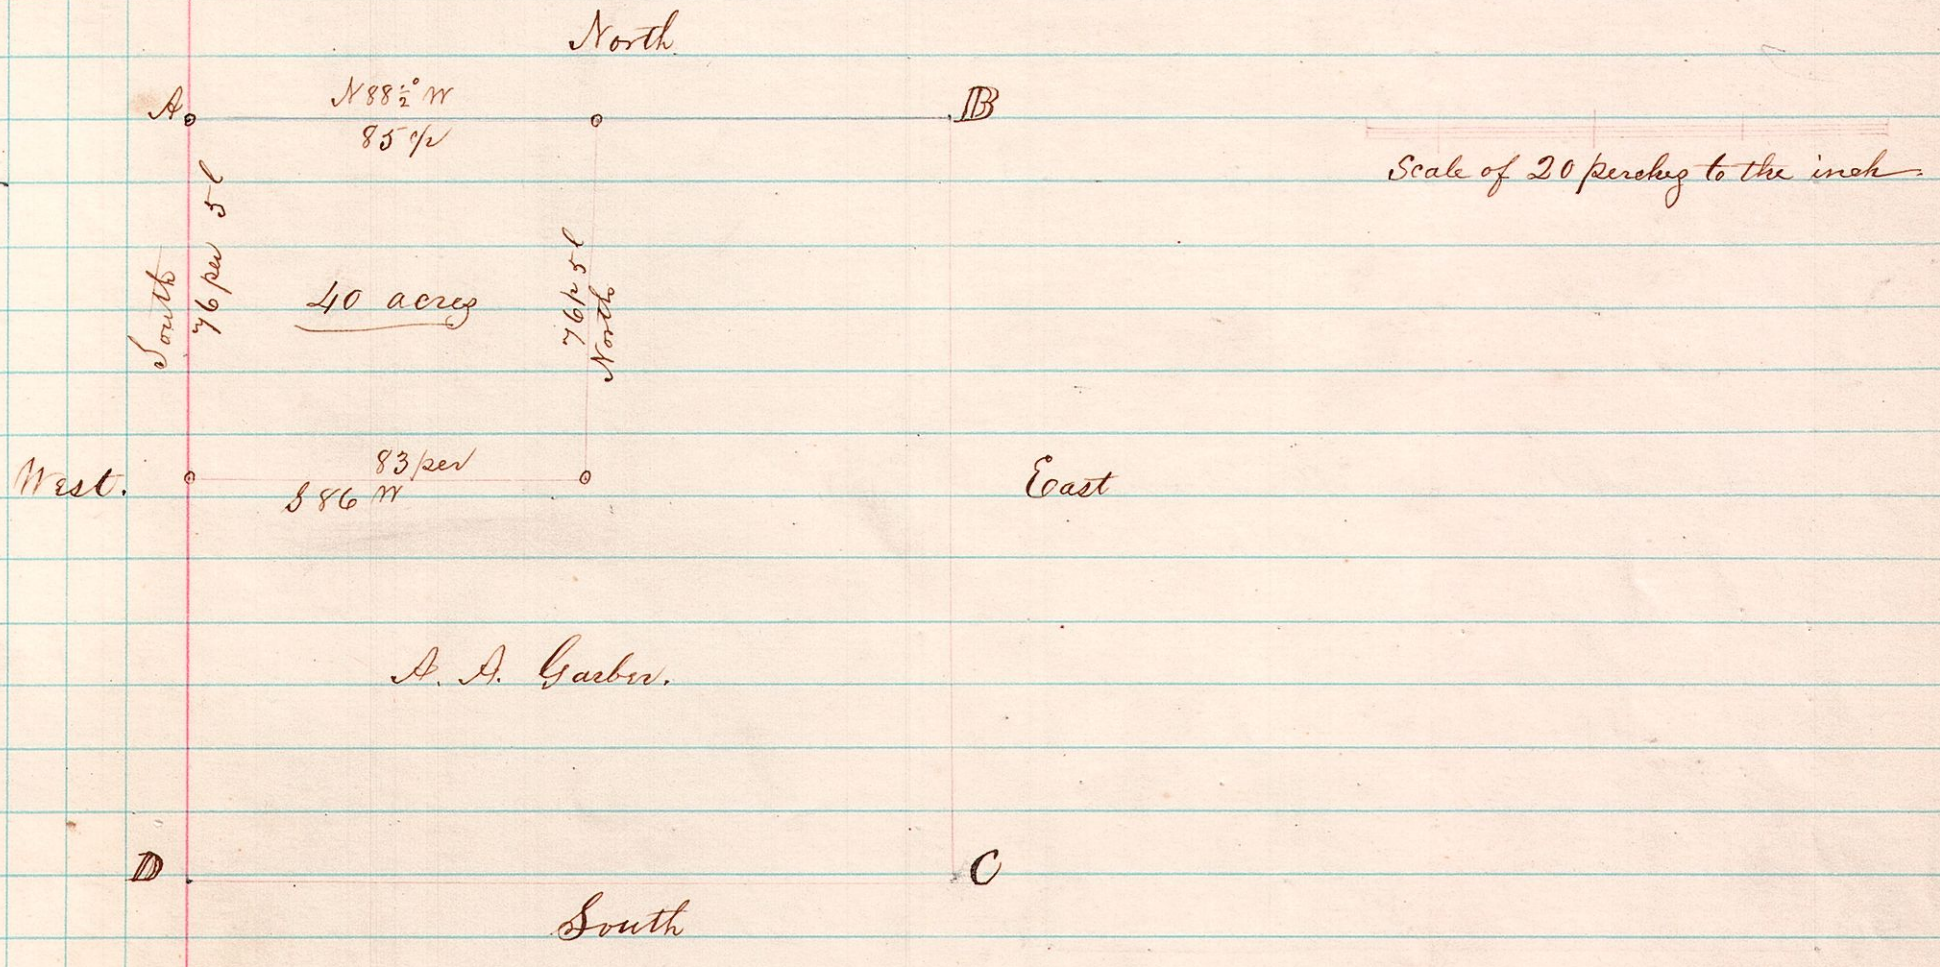 North
A
N 88 1/2° W
B
85 p
Scale of 20 perches to the inch
South
76 per 5 l
40 acres
76 p 5 l
North
West.
83 per
S 86 W
East
A. A. Garber.
D
C
South